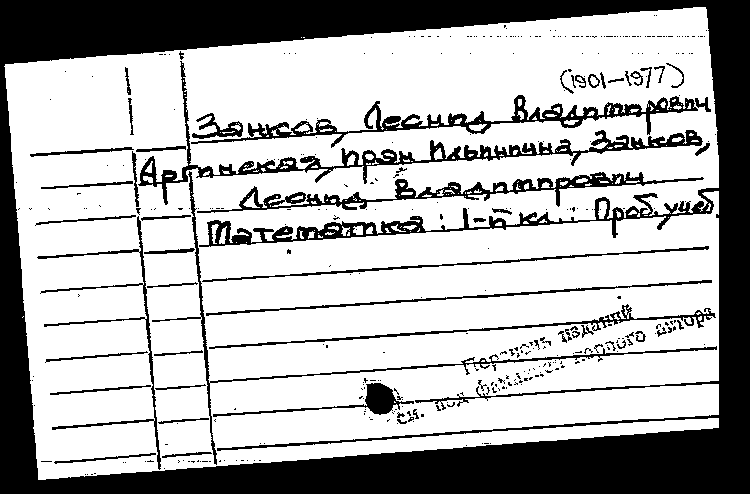 (1901-1977)
Занков, Леонид Владимирович
Аргинская, Ирэн Ильинична, Занков,
Леонид Владимирович
Математика: 1-й кл.: Проб. учеб.
Перечень изданий
см. под фамилией первого автора